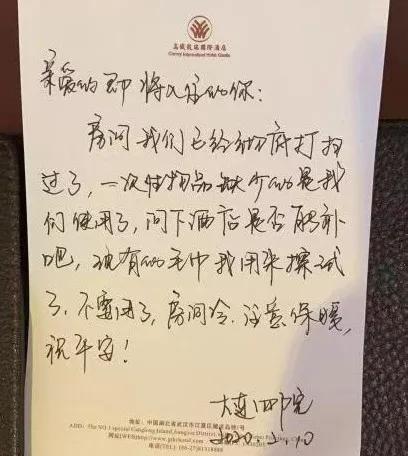 高铁凯瑞国际酒店
亲爱的即将入住的你：
房间我们已经彻底打扫
过了，一次性物品缺少的是我
们使用了，问下酒店是否能补
吧，现有的毛巾我用来擦试
了，不要用了，房间冷，注意保暖，
祝平安！
大连四院
2020.2.10
地址：中国湖北省武汉市江夏区藏龙岛特1号
ADD: The NO.1 special Canglong Island, Jiangxia District, Wuhan
电话(TEL): (86-27)81318888